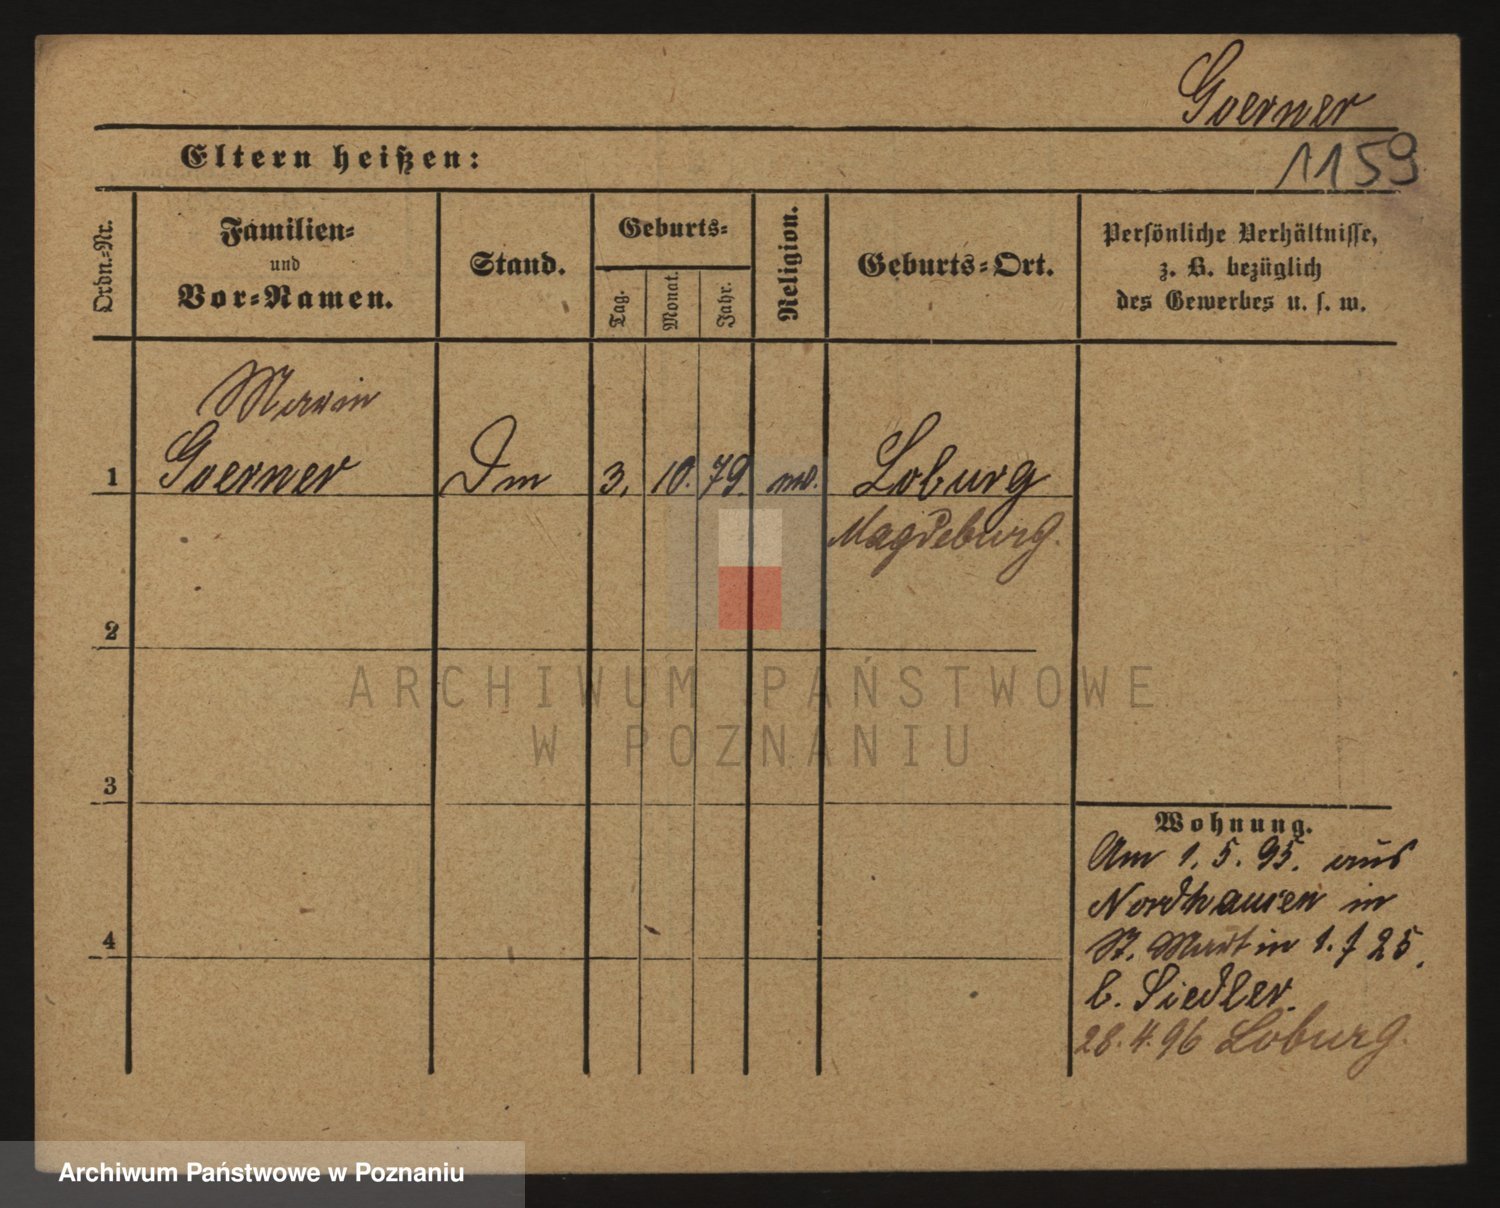 Goerner
1159
Eltern heißen:
Ordn.-Nr.
Familien-
und
Vor-Namen.
Stand.
Geburts-
Tag.
Monat.
Jahr.
Religion.
Geburts-Ort.
Persönliche Verhältnisse,
z. B. bezüglich
des Gewerbes u. s. w.
1
Goerner
3. 10. 79.
Loburg
Magdeburg.
2
3
4
Wohnung.
Am 1. 5. 95. aus
Nordhausen in
St. Martin 25.
b. Siedler.
28.4.96 Loburg.
ARCHIWUM PAŃSTWOWE
W POZNANIU
Archiwum Państwowe w Poznaniu